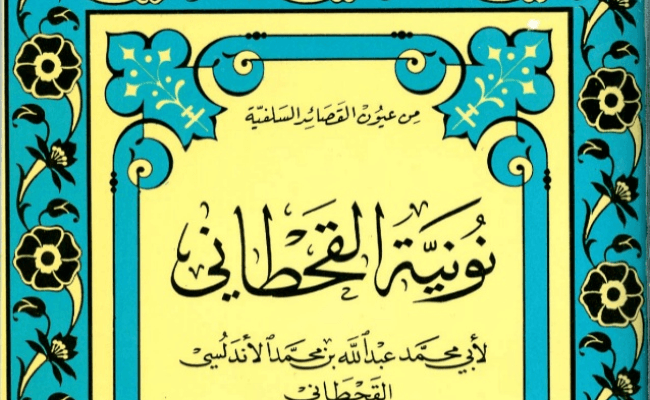 من عيون القصائد السلفية
نُونيّة القحطاني
لأبي محمد عبد الله بن محمد الأندلسي
القحطاني